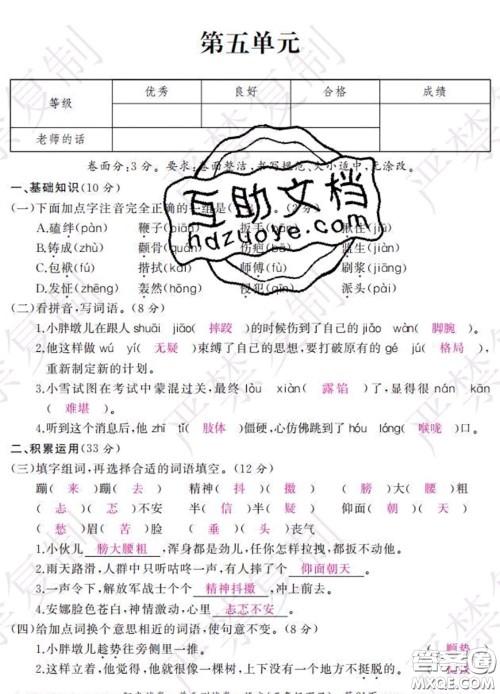 第五单元
等级 优秀 良好 合格 成绩
老师的话
卷面分:3分。要求:卷面整洁,书写规范、大小适中,无涂改。
一、基础知识(10分)
(一)下面加点字注音完全正确的一组是( )。(2分)
A.磕绊(pàn) 鞭子(biān) 扳手(bān)
B.铸成(zhù) 颧骨(quán) 伤疤(bā) 监生(jiàn)
C.包袱(fú) 揩拭(kāi) 师傅(fù) 刷浆(jiāng)
D.发怔(zhēng) 轰然(hōng) 侵犯 派头(pài)
(二)看拼音,写词语。
1.小胖墩儿在跟人 shuāi jiāo( 摔跤 )的时候伤到了自己的 jiǎo wàn( 脚腕 )。
2.他这样做 wú yí( 无疑 )束缚了自己的思想,要打破原有的 gé jú( 格局 ),
重新制定新的计划。
3.小雪试图在考试中蒙混过关,最终 lòu xiàn( 露馅 )了,显得很 nán kān
( 难堪 )。
4.听到这个消息后,他 zhī tǐ( 肢体 )僵硬,心仿佛跳到了 hóu lóng( 喉咙 )口。
二、积累运用(33分)
(三)填字组词,再选择合适的词语填空。(12分)
蹦( 来 )蹦( 去 ) 精神( 抖 )( 擞 ) 膀( 大 )( 腰 )粗
( 忐 )( 忑 )不安 半( 信 )半( 疑 ) 仰面( 朝 )( 天 )
( 愁 )眉( 苦 )脸 ( 垂 )( 头 )丧气
1.小伙儿 膀大腰粗 ,浑身都是劲儿,任你怎样拉拽,都扳不动他。
2.雨天路滑,人群中只听咕咚一声,有人摔了个 仰面朝天 。
3.一声令下,解放军战士个个 精神抖擞 ,冲上前去。
4.安娜脸色苍白,神情激动,心里 忐忑不安 。
(四)给加点词换个意思相近的词语,使句意不变。(8分)
1.小胖墩儿趁势往旁侧里一推。 顺势
2.这样立着,他觉得,他就很像一棵树,上下没有一个地方不挺脱的。
互助文档
hdzuoye.com
严禁复制